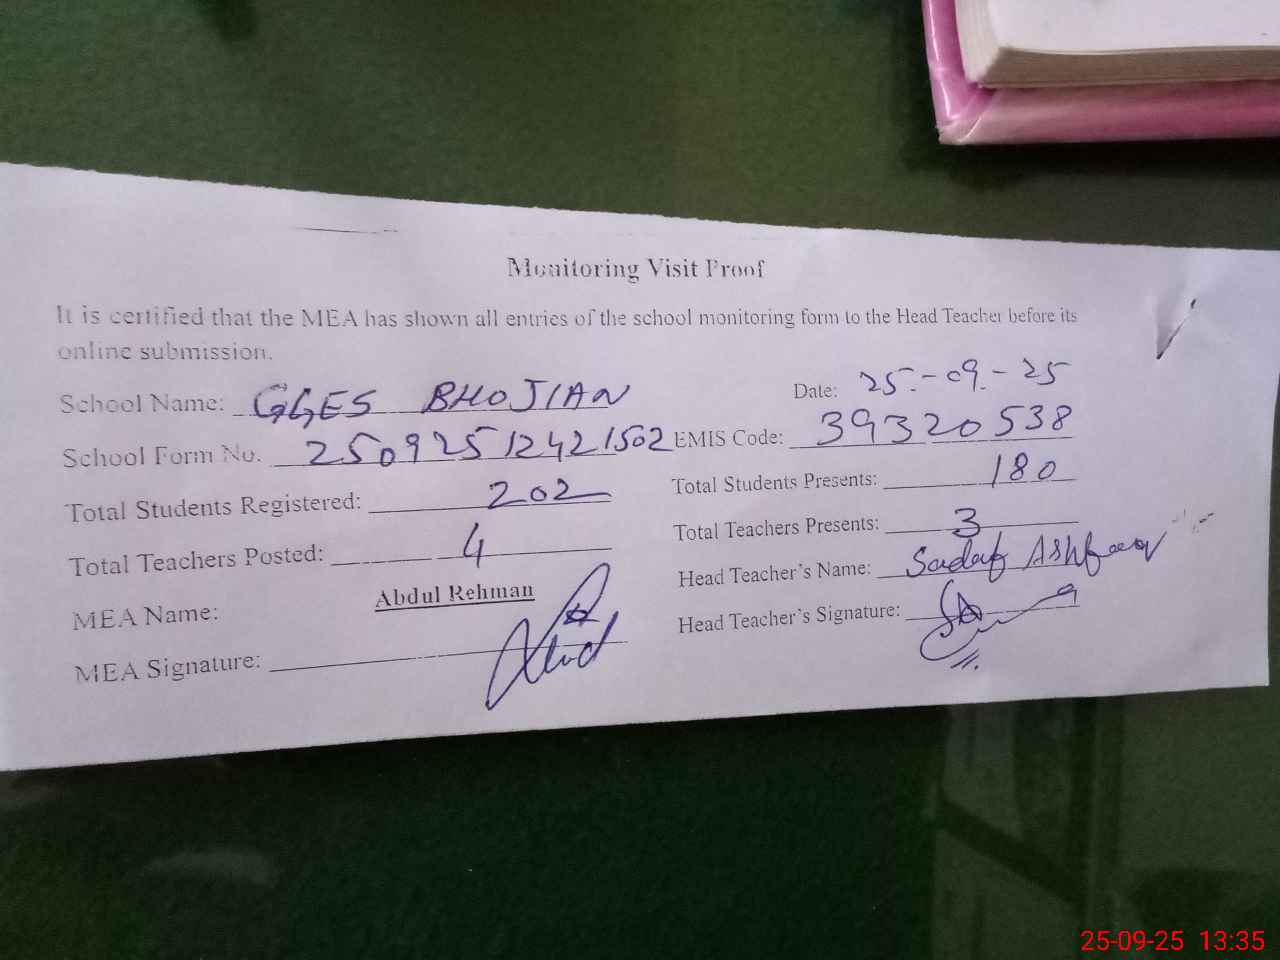 Monitoring Visit Proof
It is certified that the MEA has shown all entries of the school monitoring form to the Head Teacher before its
online submission.
School Name: GGES BHOJIAN
Date: 25-09-25
School Form No. 25092512421502
EMIS Code: 39320538
Total Students Registered: 202
Total Students Presents: 180
Total Teachers Posted: 4
Total Teachers Presents: 3
MEA Name: Abdul Rehman
Head Teacher's Name: Sadaf Ashfaq
MEA Signature:
Head Teacher's Signature:
25-09-25 13:35